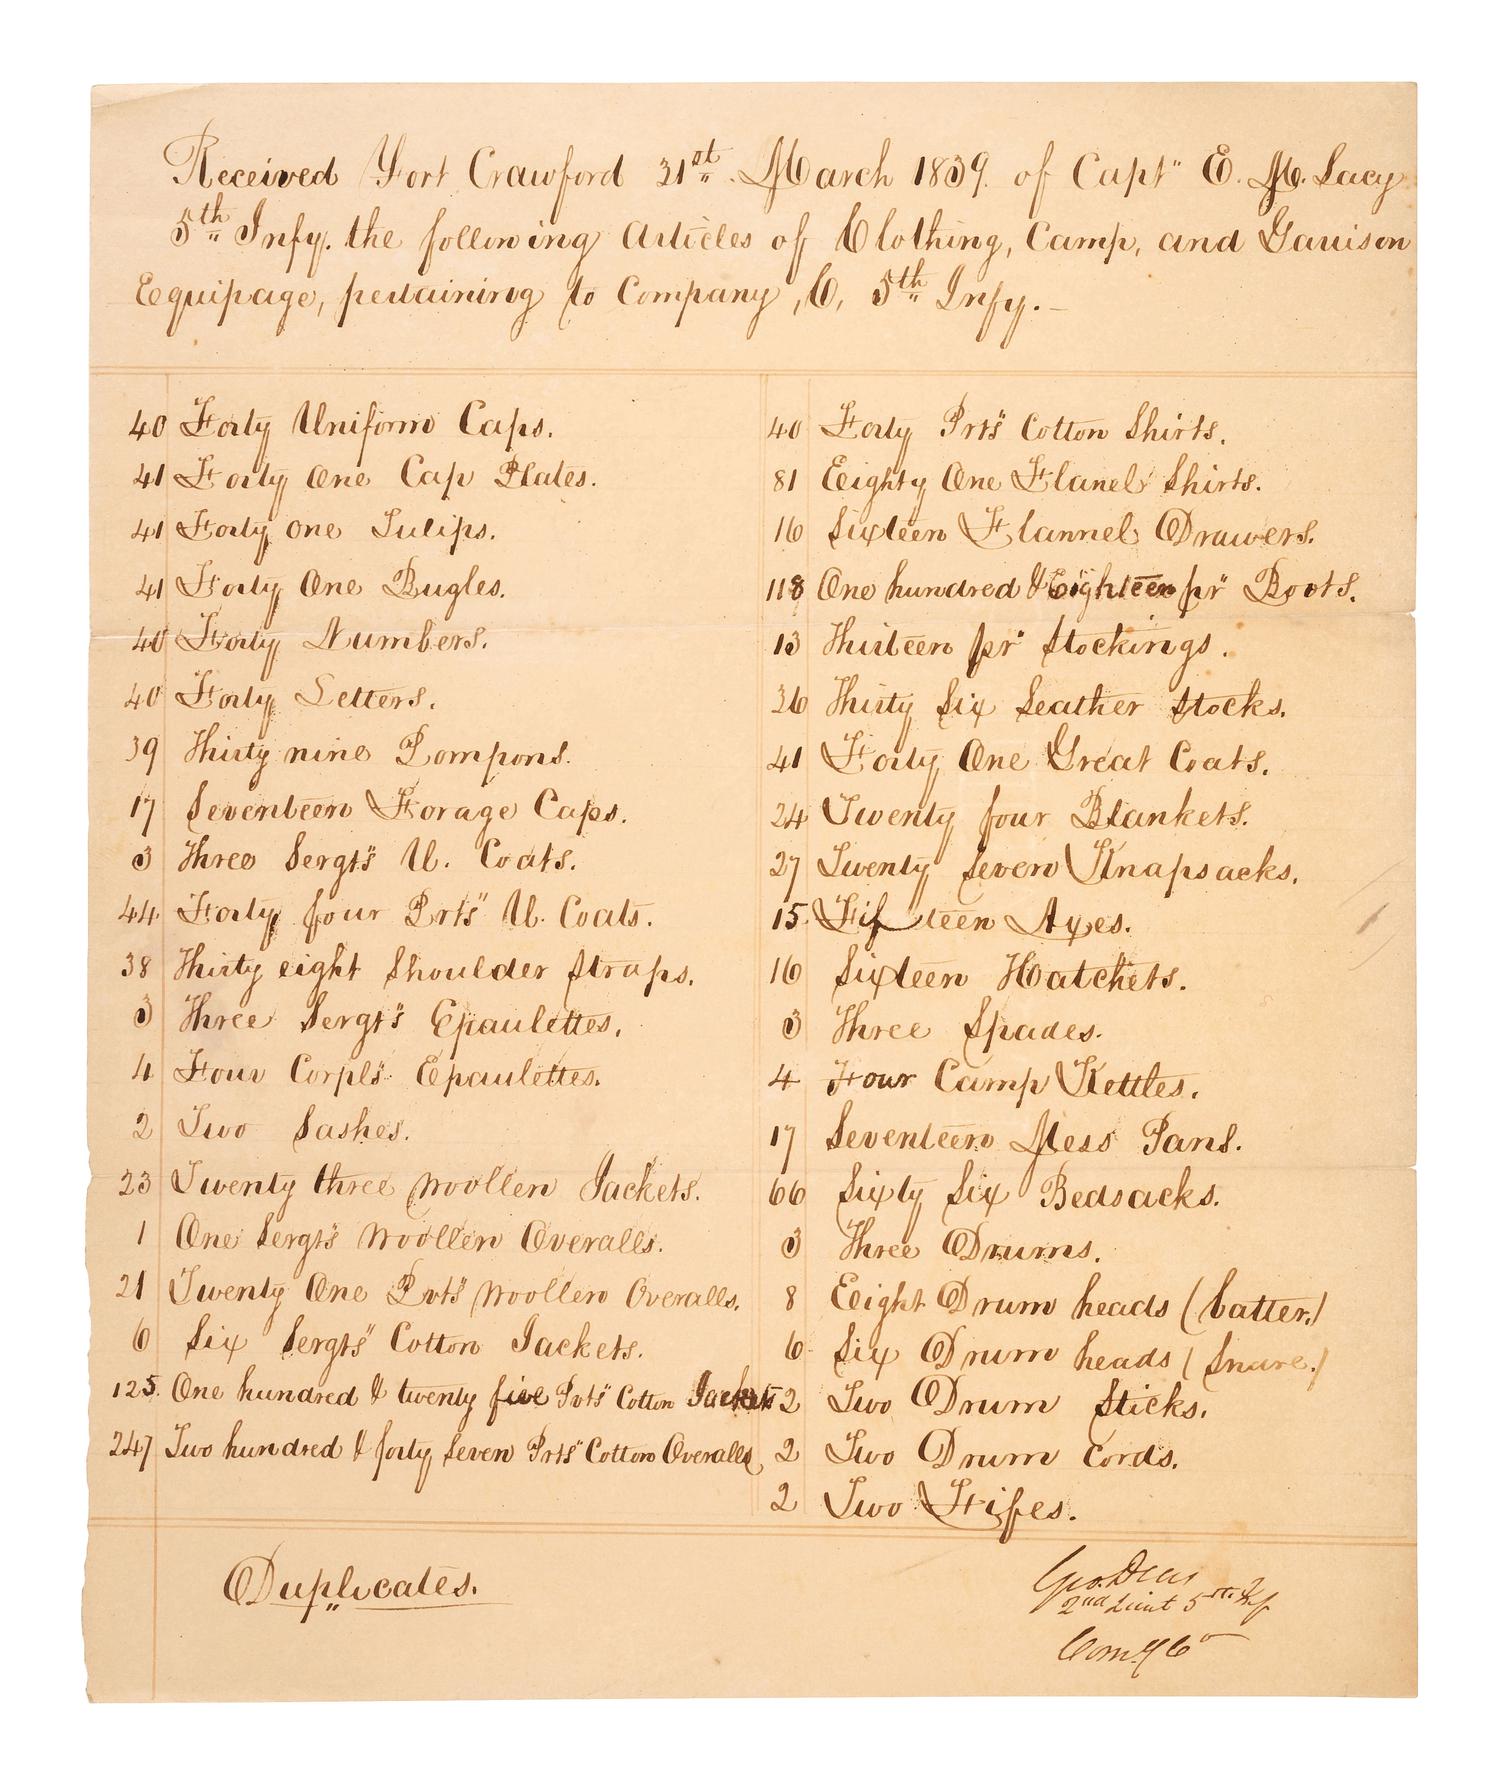 Received Fort Crawford 31st March 1839. of Capt" E. M. Lacy
5th Infy. the following Articles of Clothing, Camp, and Garrison
Equipage, pertaining to Company ,C, 5th Infy.—
40 Forty Uniform Caps.
41 Forty One Cap Plates.
41 Forty one Tulips.
41 Forty One Bugles.
40 Forty Numbers.
40 Forty Letters.
39 Thirty nine Pompons.
17 Seventeen Forage Caps.
3 Three Sergt's U. Coats.
44 Forty four Prts" U. Coats.
38 Thirty eight Shoulder Straps.
3 Three Sergt's Epaulettes.
4 Four Corpl's Epaulettes.
2 Two Sashes.
23 Twenty three Woollen Jackets.
1 One Sergt's Woollen Overalls.
21 Twenty One Pvts" Woollen Overalls.
6 Six Sergts" Cotton Jackets.
125 One hundred & twenty five Pvts" Cotton Jackets
247 Two hundred & forty Seven Prts" Cotton Overalls
40 Forty Prts" Cotton Shirts.
81 Eeighty One Flanel Shirts.
16 Sixteen Flannel Drawers.
118 One hundred & Eighteen pr" Boots.
13 Thirteen pr" Stockings.
36 Thirty Six Leather Stocks.
41 Forty One Great Coats.
24 Twenty four Blankets.
27 Twenty Seven Knapsacks.
15 Fifteen Axes.
16 Sixteen Hatchets.
3 Three Spades.
4 Four Camp Kettles.
17 Seventeen Mess Pans.
66 Sixty Six Bedsacks.
3 Three Drums.
8 Eeight Drum heads (batter.)
6 Six Drum heads (Snare.)
2 Two Drum Sticks.
2 Two Drum Cords.
2 Two Fifes.
Duplicates.
Geo. Deas
2nd Lieut 5th Inf
Com'g Co